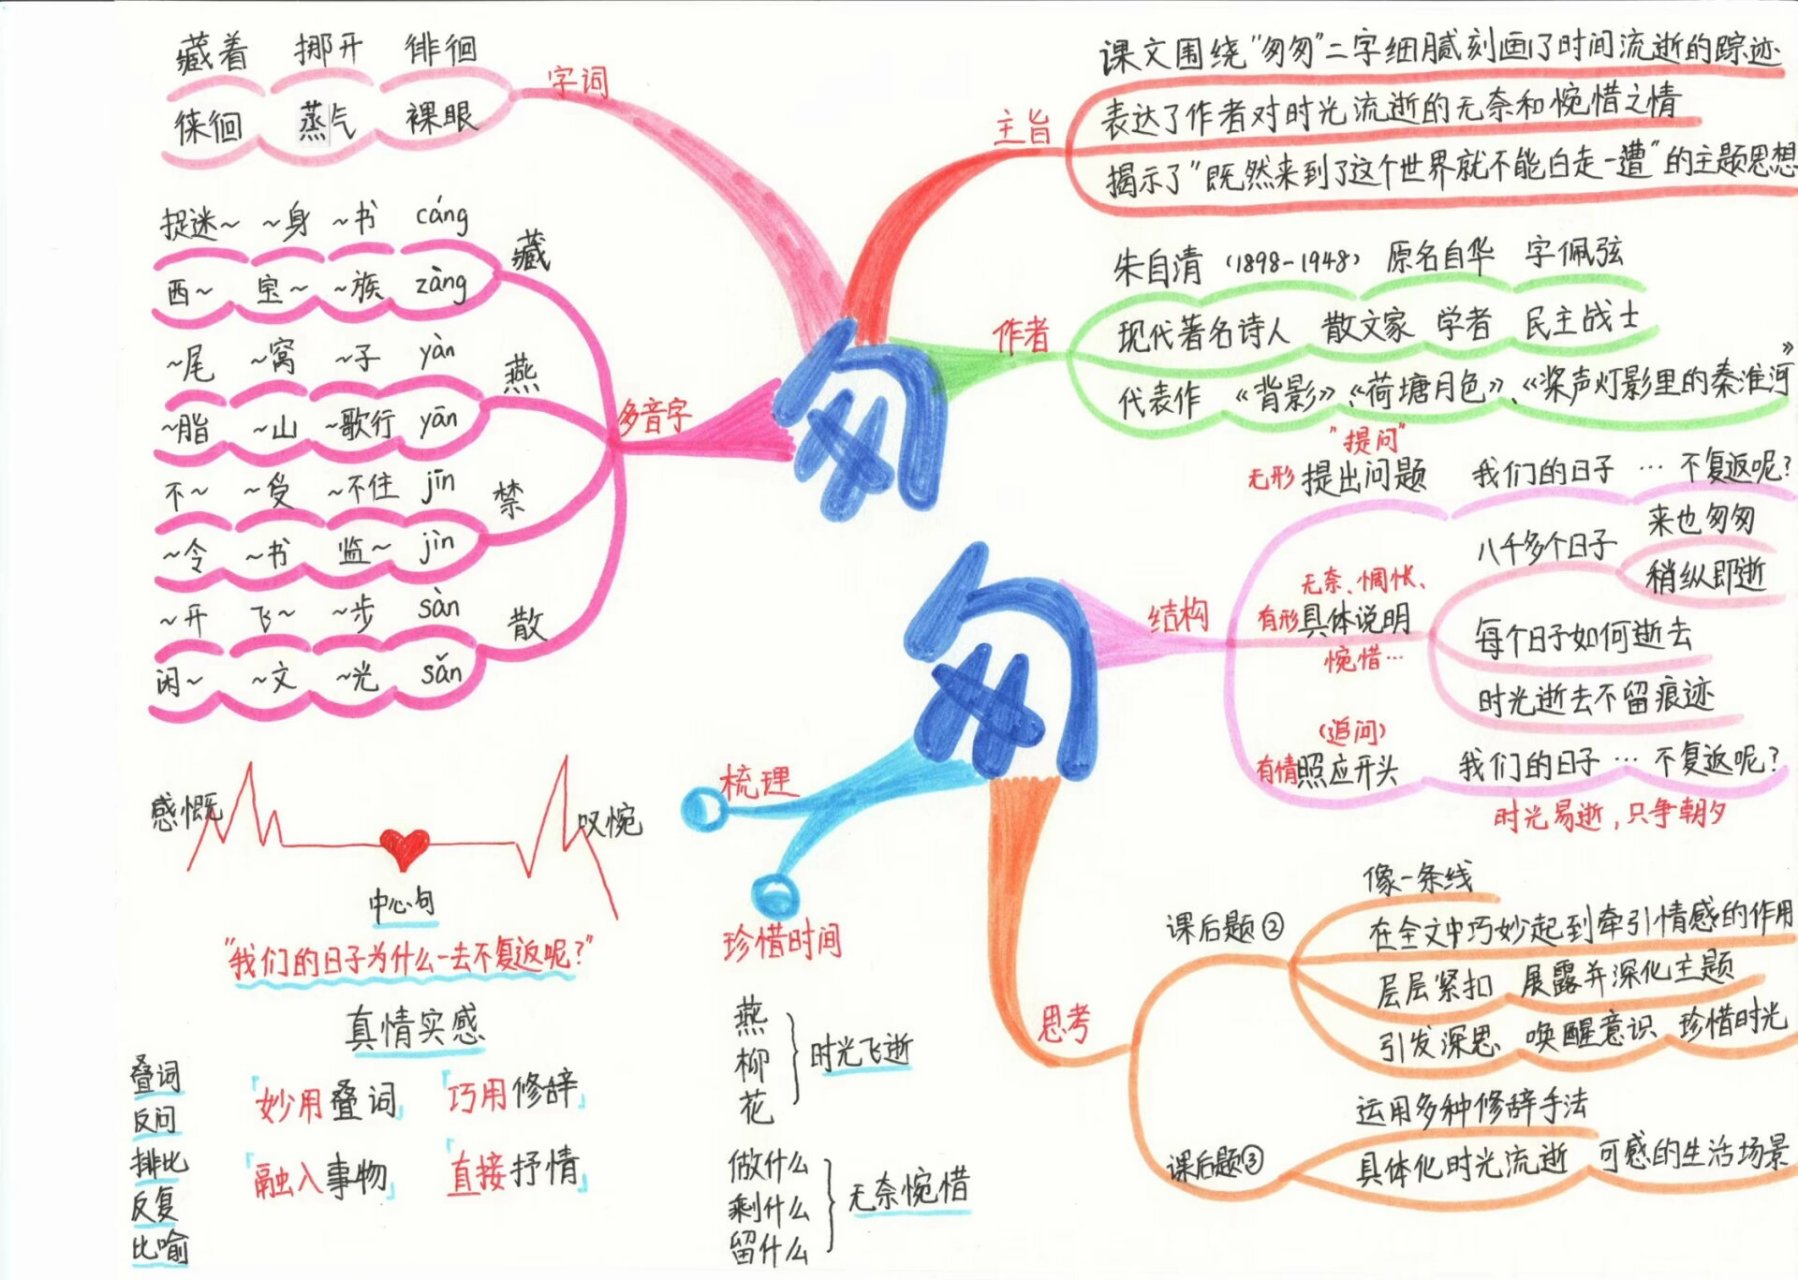 藏着 挪开 徘徊
徕徊 蒸气 裸眼
字词
捉迷~ ~身 ~书 cáng
西~ 宝~ ~族 zàng
藏
~尾 ~窝 ~子 yàn
~脂 ~山 ~歌行 yān
燕
不~ ~受 ~不住 jīn
~令 ~书 监~ jìn
禁
~开 飞~ ~步 sàn
闲~ ~文 ~光 sǎn
散
多音字
匆
主旨
课文围绕"匆匆"二字细腻刻画了时间流逝的踪迹
表达了作者对时光流逝的无奈和惋惜之情
揭示了"既然来到了这个世界就不能白走一遭"的主题思想
作者
朱自清 (1898-1948) 原名自华 字佩弦
现代著名诗人 散文家 学者 民主战士
代表作 《背影》、《荷塘月色》、《桨声灯影里的秦淮河》
匆
结构
"提问"
无形 提出问题 我们的日子 … 不复返呢?
无奈、惆怅、
有形 具体说明
惋惜…
八千多个日子
来也匆匆
稍纵即逝
每个日子如何逝去
时光逝去不留痕迹
(追问)
有情 照应开头 我们的日子 … 不复返呢?
时光易逝,只争朝夕
思考
课后题②
像一条线
在全文中巧妙起到牵引情感的作用
层层紧扣 展露并深化主题
引发深思 唤醒意识 珍惜时光
课后题③
运用多种修辞手法
具体化时光流逝 可感的生活场景
梳理
珍惜时间
燕
柳
花
时光飞逝
做什么
剩什么
留什么
无奈惋惜
感慨
叹惋
中心句
"我们的日子为什么一去不复返呢?"
真情实感
「妙用叠词」 「巧用修辞」
「融入事物」 「直接抒情」
叠词
反问
排比
反复
比喻